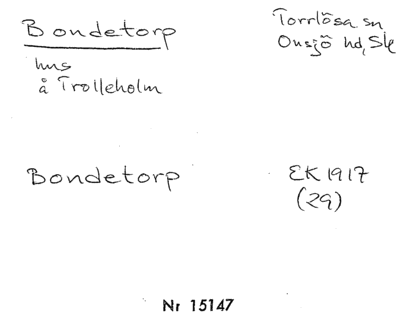 Bondetorp
Torrlösa sn
Onsjö hd, Sk
hus
å Trolleholm
Bondetorp
EK 1917
(29)
Nr 15147